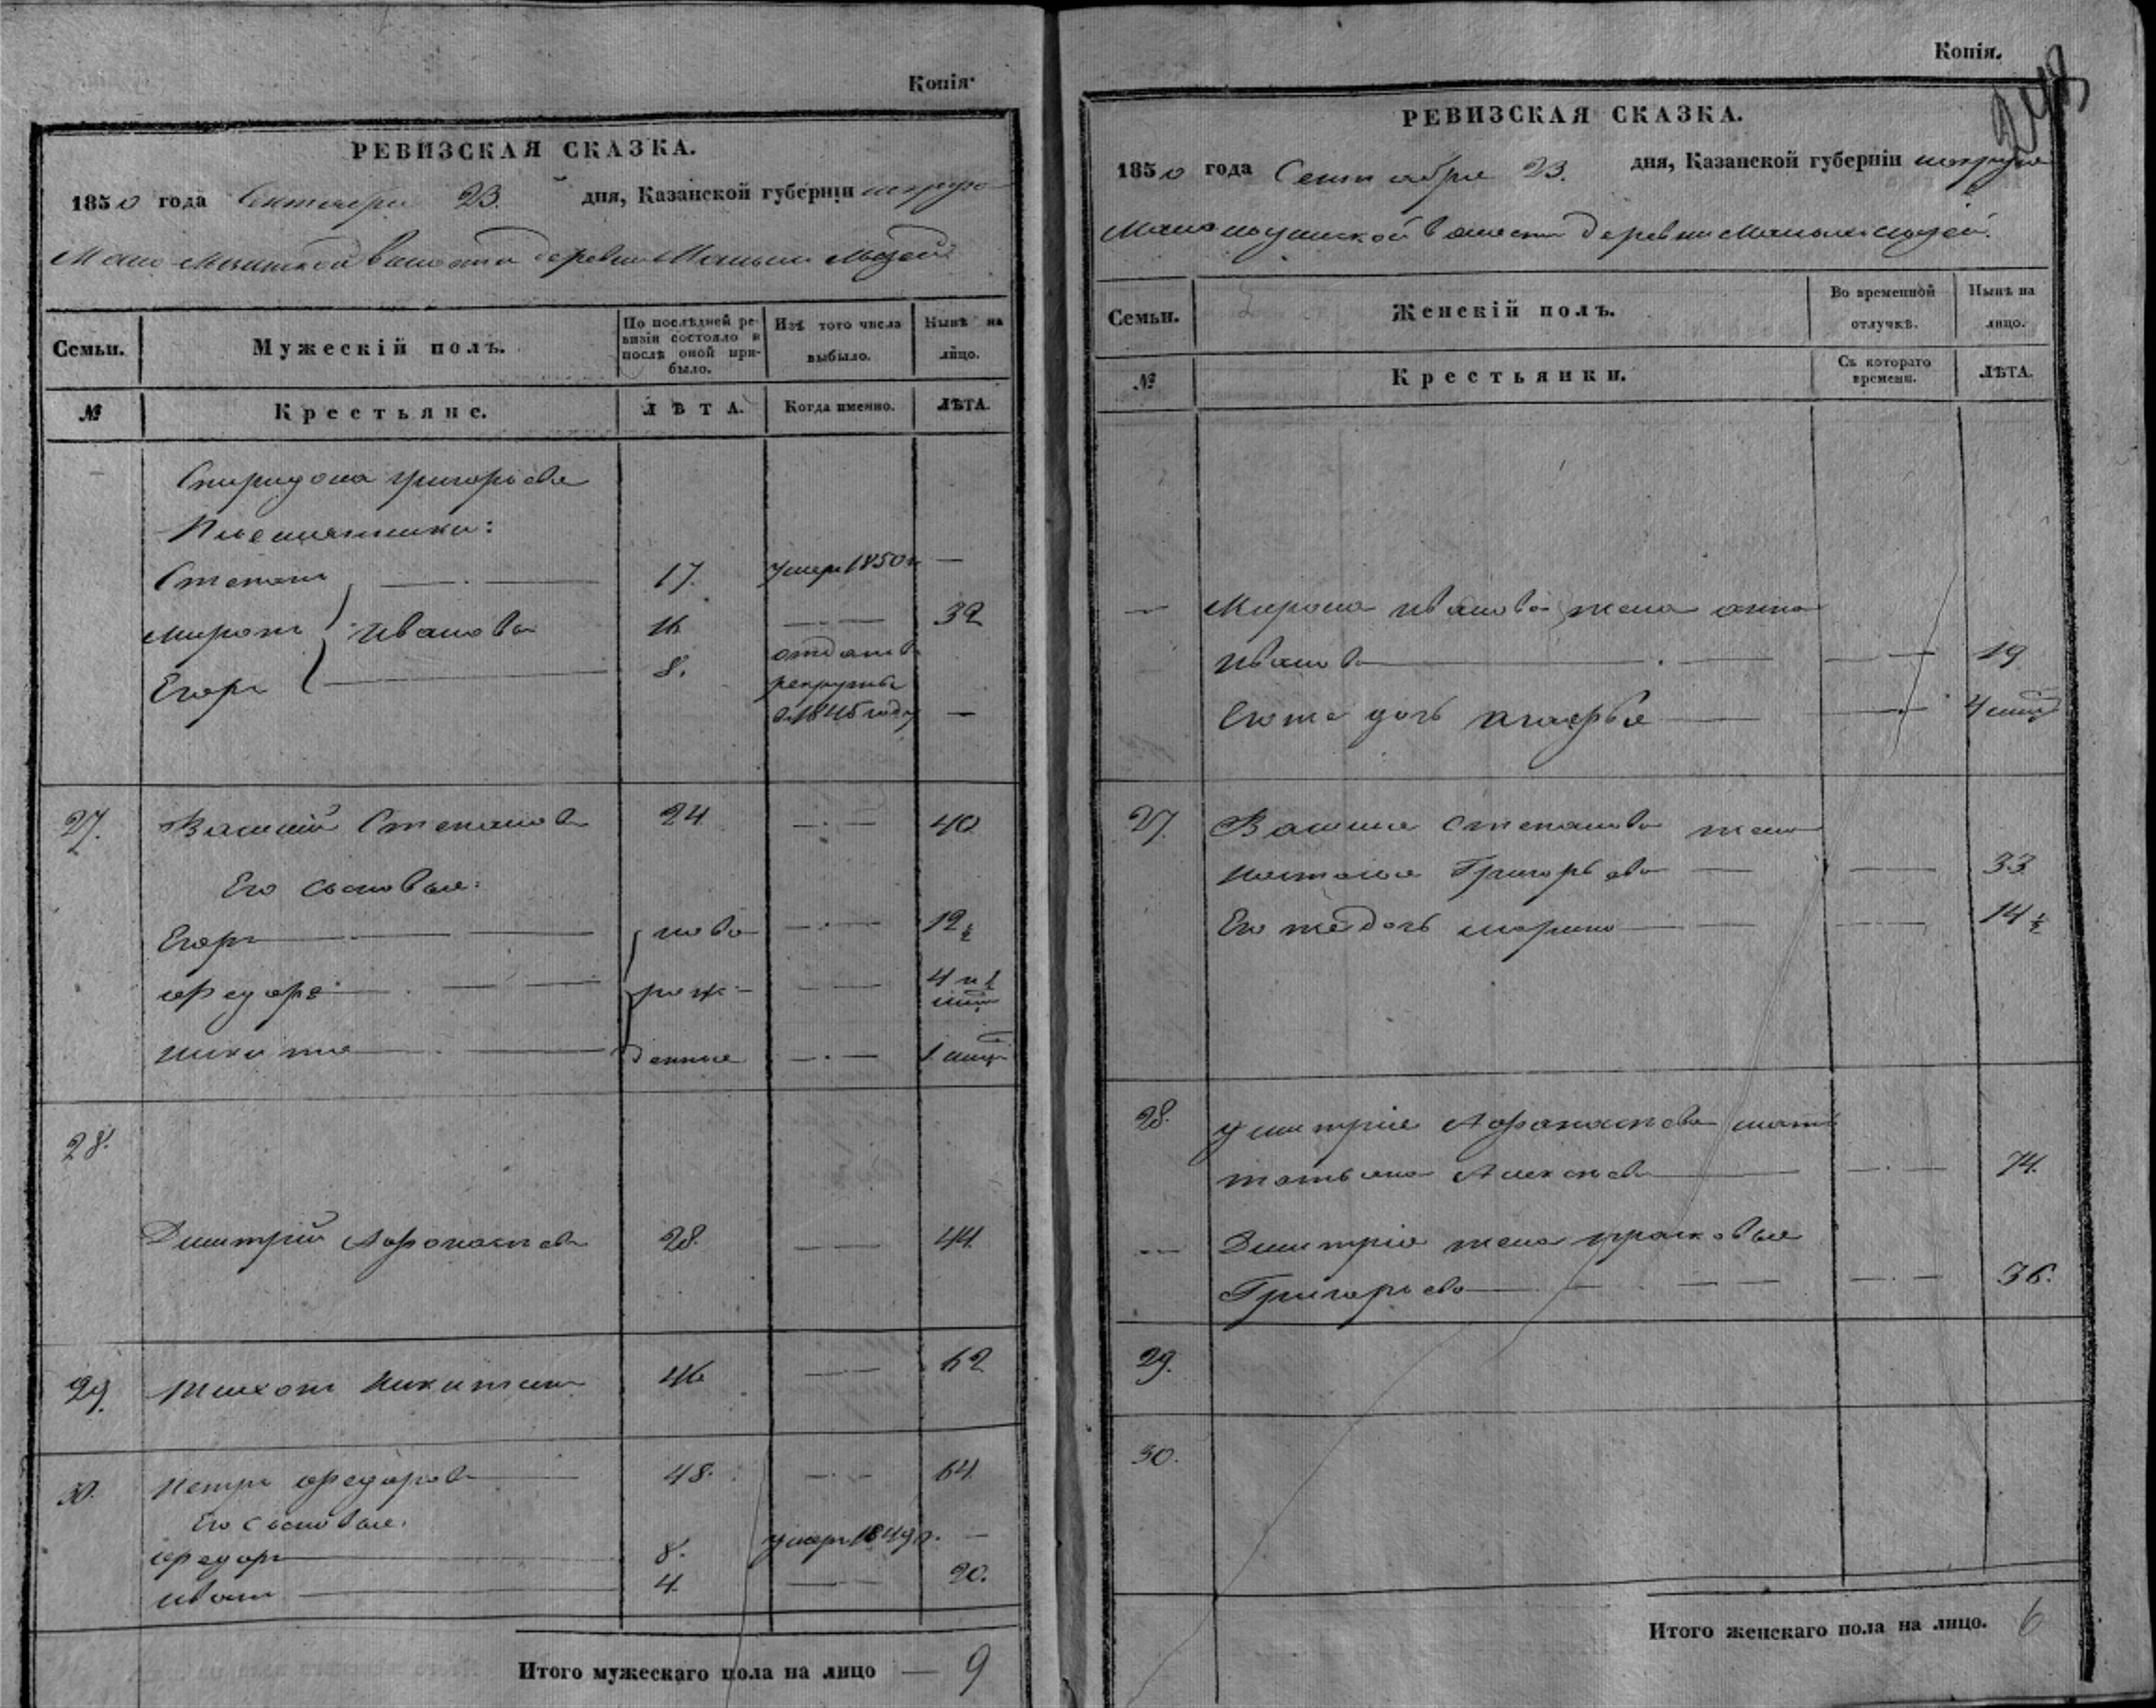 Копія.
РЕВИЗСКАЯ СКАЗКА.
1850 года Сентября 23. дня, Казанской губерніи
волости деревни
Семьи.
Мужескій полъ.
По послѣдней ревизіи состояло и послѣ оной прибыло.
Изъ того числа выбыло.
Нынѣ на лицо.
№
Крестьяне.
ЛѢТА.
Когда именно.
ЛѢТА.
Спиридона Григорьева
Племянники:
Степанъ 17. умеръ 1850 г —
Миронъ Ивановы 16 — 32
Егоръ 8. отданъ въ
рекруты
въ 1845 году —
27. Василий Степановъ 24 — 40
Его сыновья:
Егоръ ново 12 ½
Федоръ рож- — 4 и 1
Никита денные — 1
28.
Димитрий Афонасьевъ 28. — 44.
29. Никитинъ 46 — 62
30. Петръ Федоровъ 48. — 64
Его сыновья.
Федоръ 8. умеръ 1849 г. —
Иванъ 4. — 20.
Итого мужескаго пола на лицо — 9
Копія.
РЕВИЗСКАЯ СКАЗКА.
1850 года Сентября 23. дня, Казанской губерніи
волости деревни
Семьи.
Женскій полъ.
Во временной отлучкѣ.
Нынѣ на лицо.
№
Крестьянки.
Съ котораго времени.
ЛѢТА.
— Мирона Иванова жена Анна
Иванова — 19
Его же дочь — 4
27. Василия Степанова жена
Григорьева — 33
Его же дочь Марина — 14 ½
28. Димитрия Афонасьева мать
Татьяна Алексеева — 74.
— Димитрия жена Прасковья
Григорьева — 36.
29.
30.
Итого женскаго пола на лицо. 6